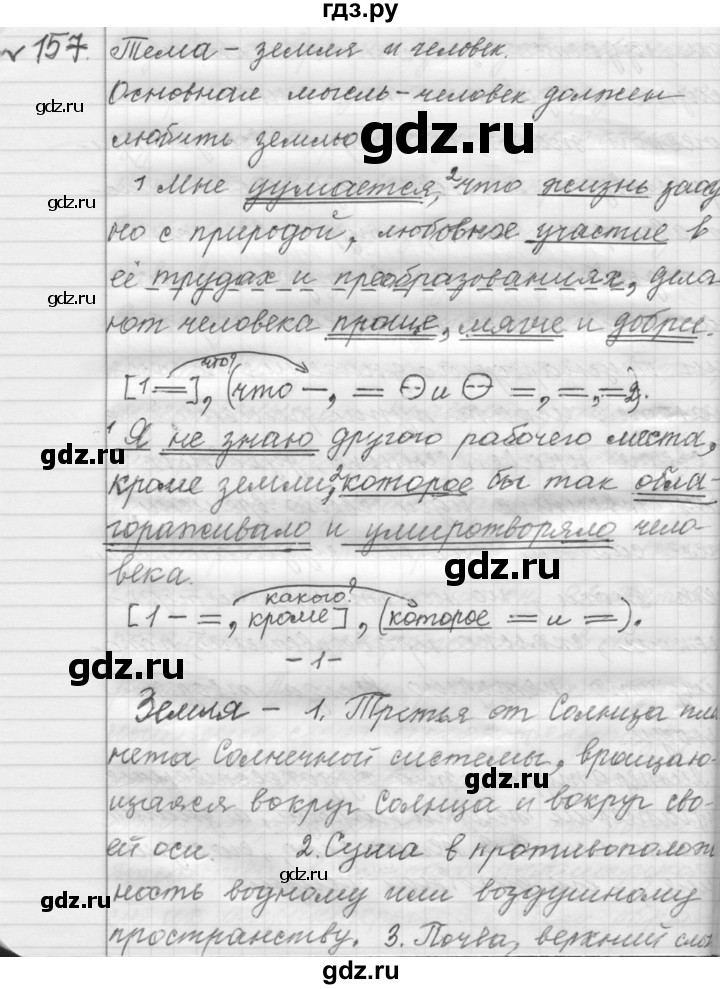 гдз.ру
№157. Тема – земля и человек.
Основная мысль – человек должен
любить землю
1 Мне думается, 2 что жизнь заод
но с природой, любовное участие в
её трудах и преобразованиях, дела
ют человека проще, мягче и добрее.
что?
[1 =], (что –, = и =, =, = 2).
1 Я не знаю другого рабочего места,
кроме земли, 2 которое бы так обла-
гораживало и умиротворяло чело-
века.
какого?
[1 – =, кроме], (которое = и =).
– 1 –
Земля – 1. Третья от Солнца пла
нета Солнечной системы, вращаю-
щаяся вокруг Солнца и вокруг сво-
ей оси. 2. Суша в противополож
ность водному или воздушному
пространству. 3. Почва, верхний слой
gdz.ru
gdz.ru
gdz.ru
gdz.ru
gdz.ru
gdz.ru
gdz.ru
gdz.ru
gdz.ru
gdz.ru
gdz.ru
gdz.ru
gdz.ru
gdz.ru